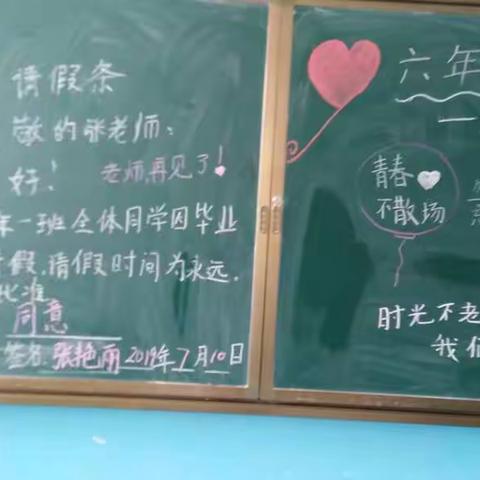 请假条
敬的张老师：
好！ 老师,再见了！
年一班全体同学因毕业
假,请假时间为永远.
批准
同意
签名:张艳丽 2019年7月10日
六年
一
青春
不散场
时光不老
我们